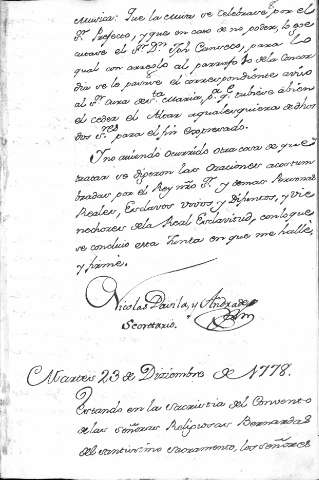 Musica: Que la Misa se celebrase por el
Sr. Prefecto, y que en caso de no poder, lo exe
cutase el Sr. Dn. Jph Carrasco, para lo
qual con arreglo al parrafo de la Concor
dia se le pasase el correspondiente aviso
al Sr. Cura de Sta. Maria, pa. qe. tubiese à bien
el ceder el Altar a qualesquiera de dhos
dos Sres. para el fin expresado.
Y no aviendo ocurrido otra cosa de que
tratar se dijeron las Oraciones acostum
bradas por el Rey nro Sr. y demas Personas
Reales, Esclavos vivos y Difuntos, y Vie
nechores de la Real Esclavitud, con lo que
se concluio esta Junta en que me hallè,
y firmè.
Nicolas Davila, y Andrade
Secretario.
Martes 23 de Diziembre de 1778.
Estando en la Sacristia del Convento
de las señoras Religiosas Bernardas
del Santissimo Sacramento, los señores